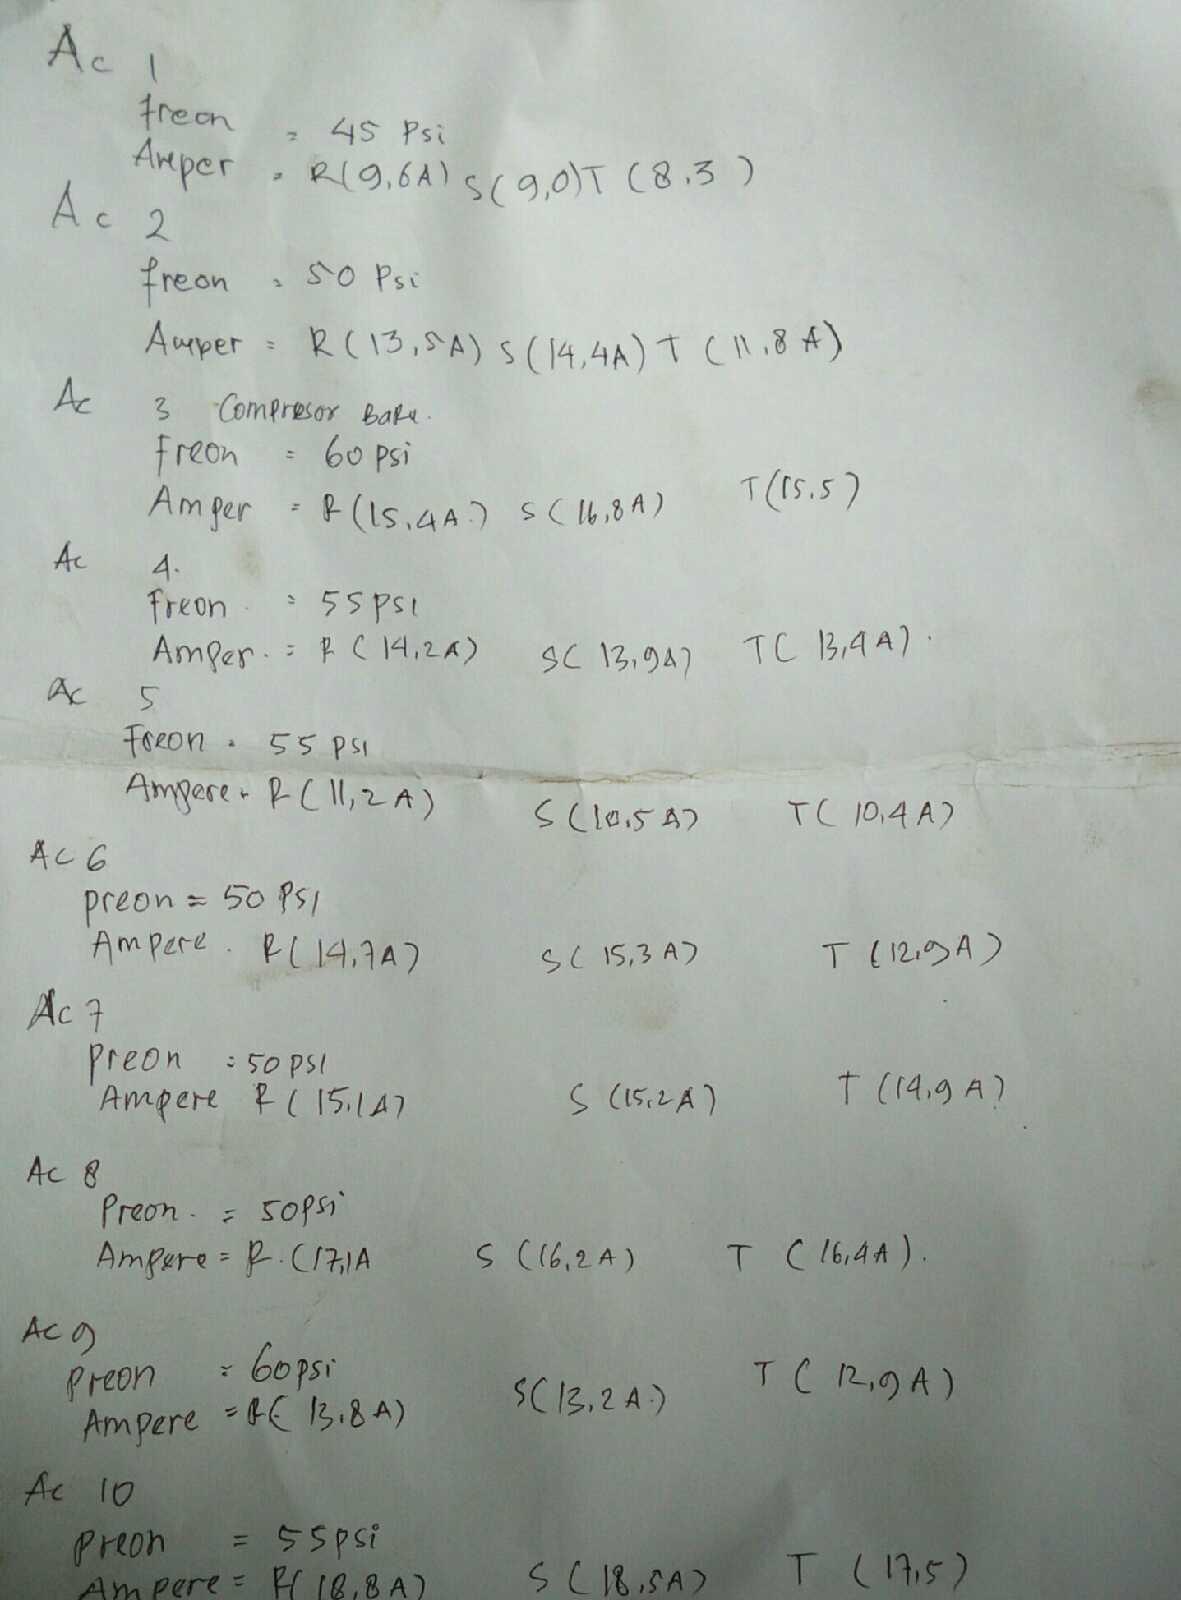 Ac 1
freon = 45 Psi
Amper = R(9,6A) S(9,0) T (8,3)
Ac 2
freon = 50 Psi
Amper = R (13,5A) S (14,4A) T (11,8 A)
Ac 3 Compresor Baru.
freon = 60 psi
Amper = R (15,4A.) S (16,8A) T (15.5)
Ac 4.
freon = 55 psi
Amper. = R (14,2A) S( 13,9A) T( 13,4A).
Ac 5
Freon = 55 psi
Ampere = R (11,2A) S (10,5A) T( 10,4A)
AC 6
preon = 50 PSI
Ampere. R( 14,7A) S( 15,3A) T (12,9A)
Ac 7
preon = 50 psi
Ampere R (15,1A) S (15,2A) T (14,9A)
Ac 8
Preon. = 50psi
Ampere = R. (17,1A S (16,2A) T (16,4A).
AC 9
preon = 60psi
Ampere = R( 13,8A) S(13,2A.) T ( 12,9A)
Ac 10
preon = 55psi
Ampere = R( 18,8A) S (18,5A) T (17,5)